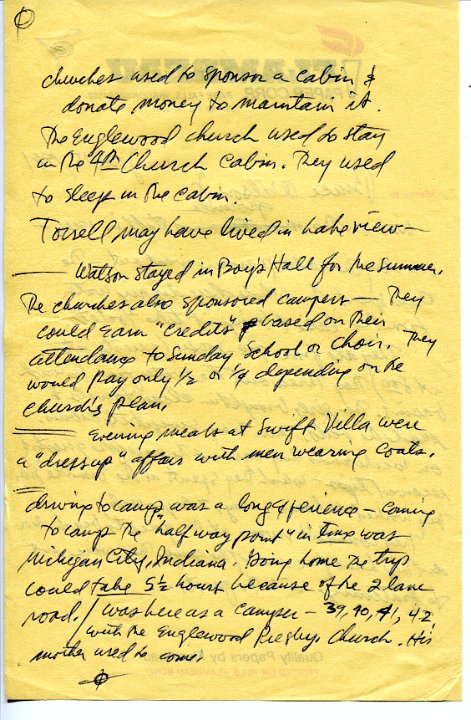 churches used to sponsor a cabin &
donate money to maintain it.
The Englewood church used to stay
in the 4th Church Cabin. They used
to sleep in the cabin.
Torrell may have lived in Lakeview —
— Watson stayed in Boy's Hall for the summer.
The churches also sponsored campers — They
could earn "credits" based on their
attendance to Sunday School or choir. They
would pay only 1/2 or 1/4 depending on the
church's plan.
Evening meals at Swift Villa were
a "dress up" affair with men wearing coats.
driving to camp was a long experience — coming
to camp the "half way point" in time was
Michigan City, Indiana. Going home the trip
could take 5 1/2 hours because of the 2 lane
road. / was here as a camper — 39, 40, 41, 42
with the Englewood Presby. Church. His
mother used to come.
Quality Papers by